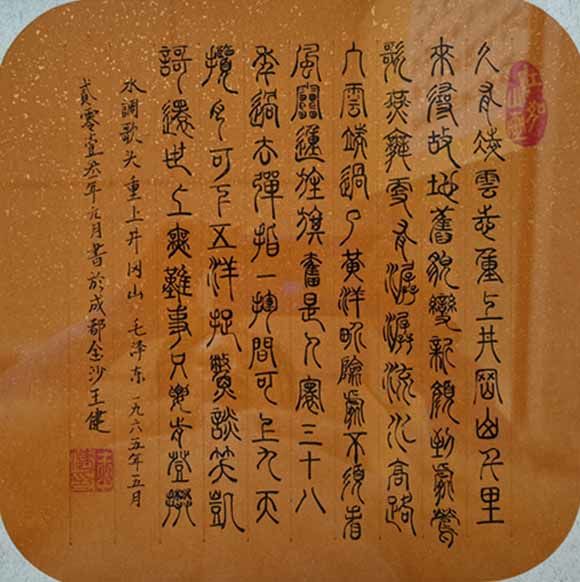 久有凌雲志重上井岡山千里
來尋故地舊貌變新顏到處鶯
歌燕舞更有潺潺流水高路
入雲端過了黃洋界險處不須看
風雷動旌旗奮是人寰三十八
年過去彈指一揮間可上九天
攬月可下五洋捉鱉談笑凱
歌還世上無難事只要肯登攀
水調歌头重上井冈山·毛泽东一九六五年五月
貳零壹叁年元月書於成都金沙王健